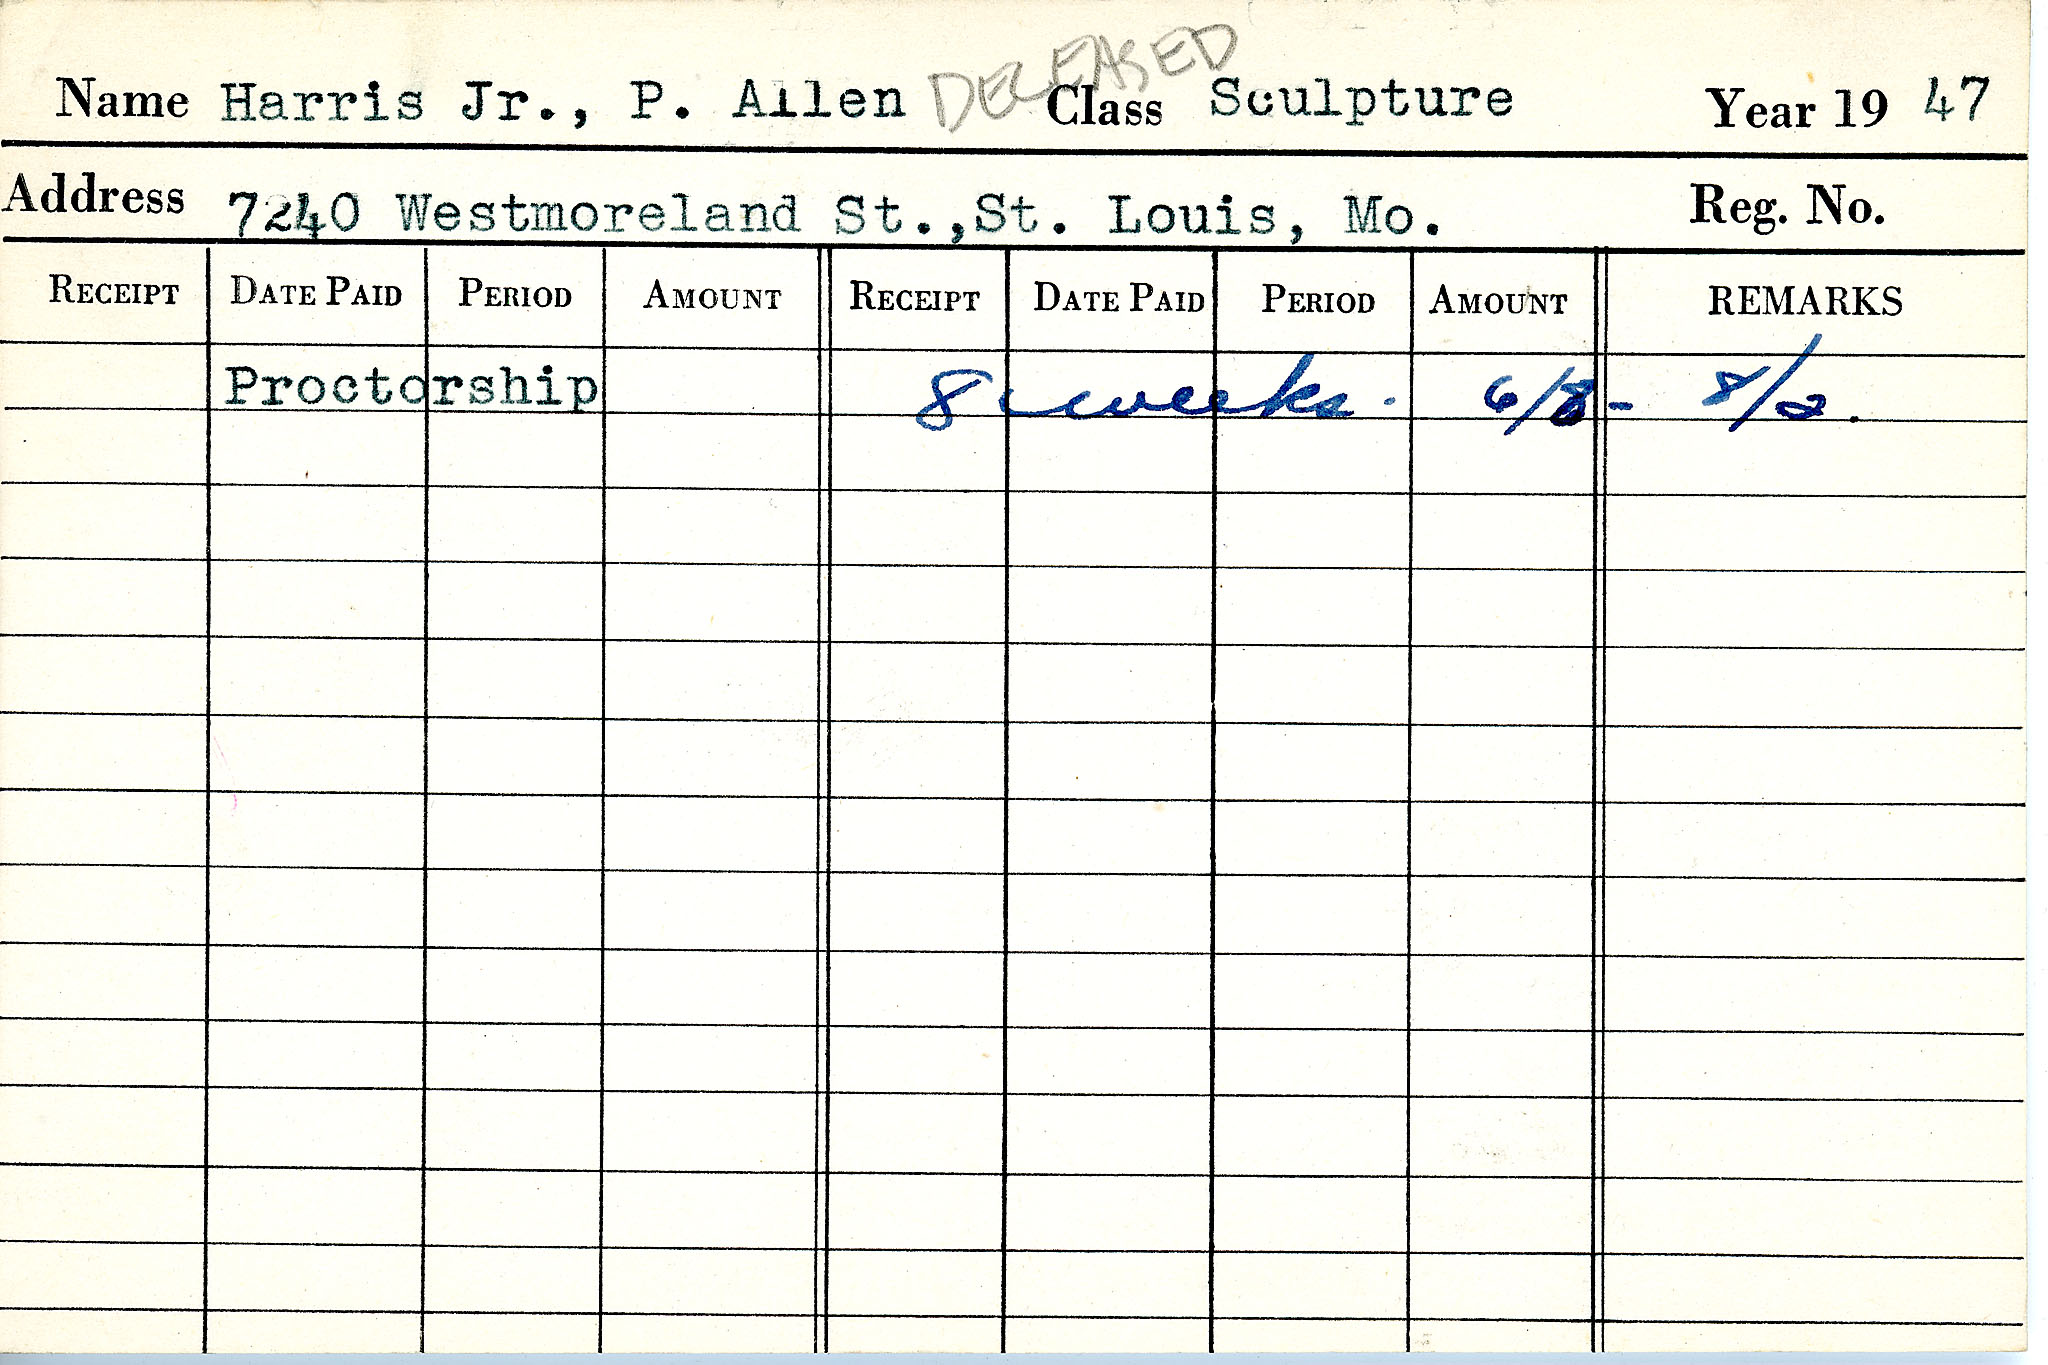 DECEASED
Name Harris Jr., P. Allen Class Sculpture Year 19 47
Address 7240 Westmoreland St.,St. Louis, Mo. Reg. No.
RECEIPT DATE PAID PERIOD AMOUNT RECEIPT DATE PAID PERIOD AMOUNT REMARKS
Proctorship 8 weeks. 6/8 - 8/2.